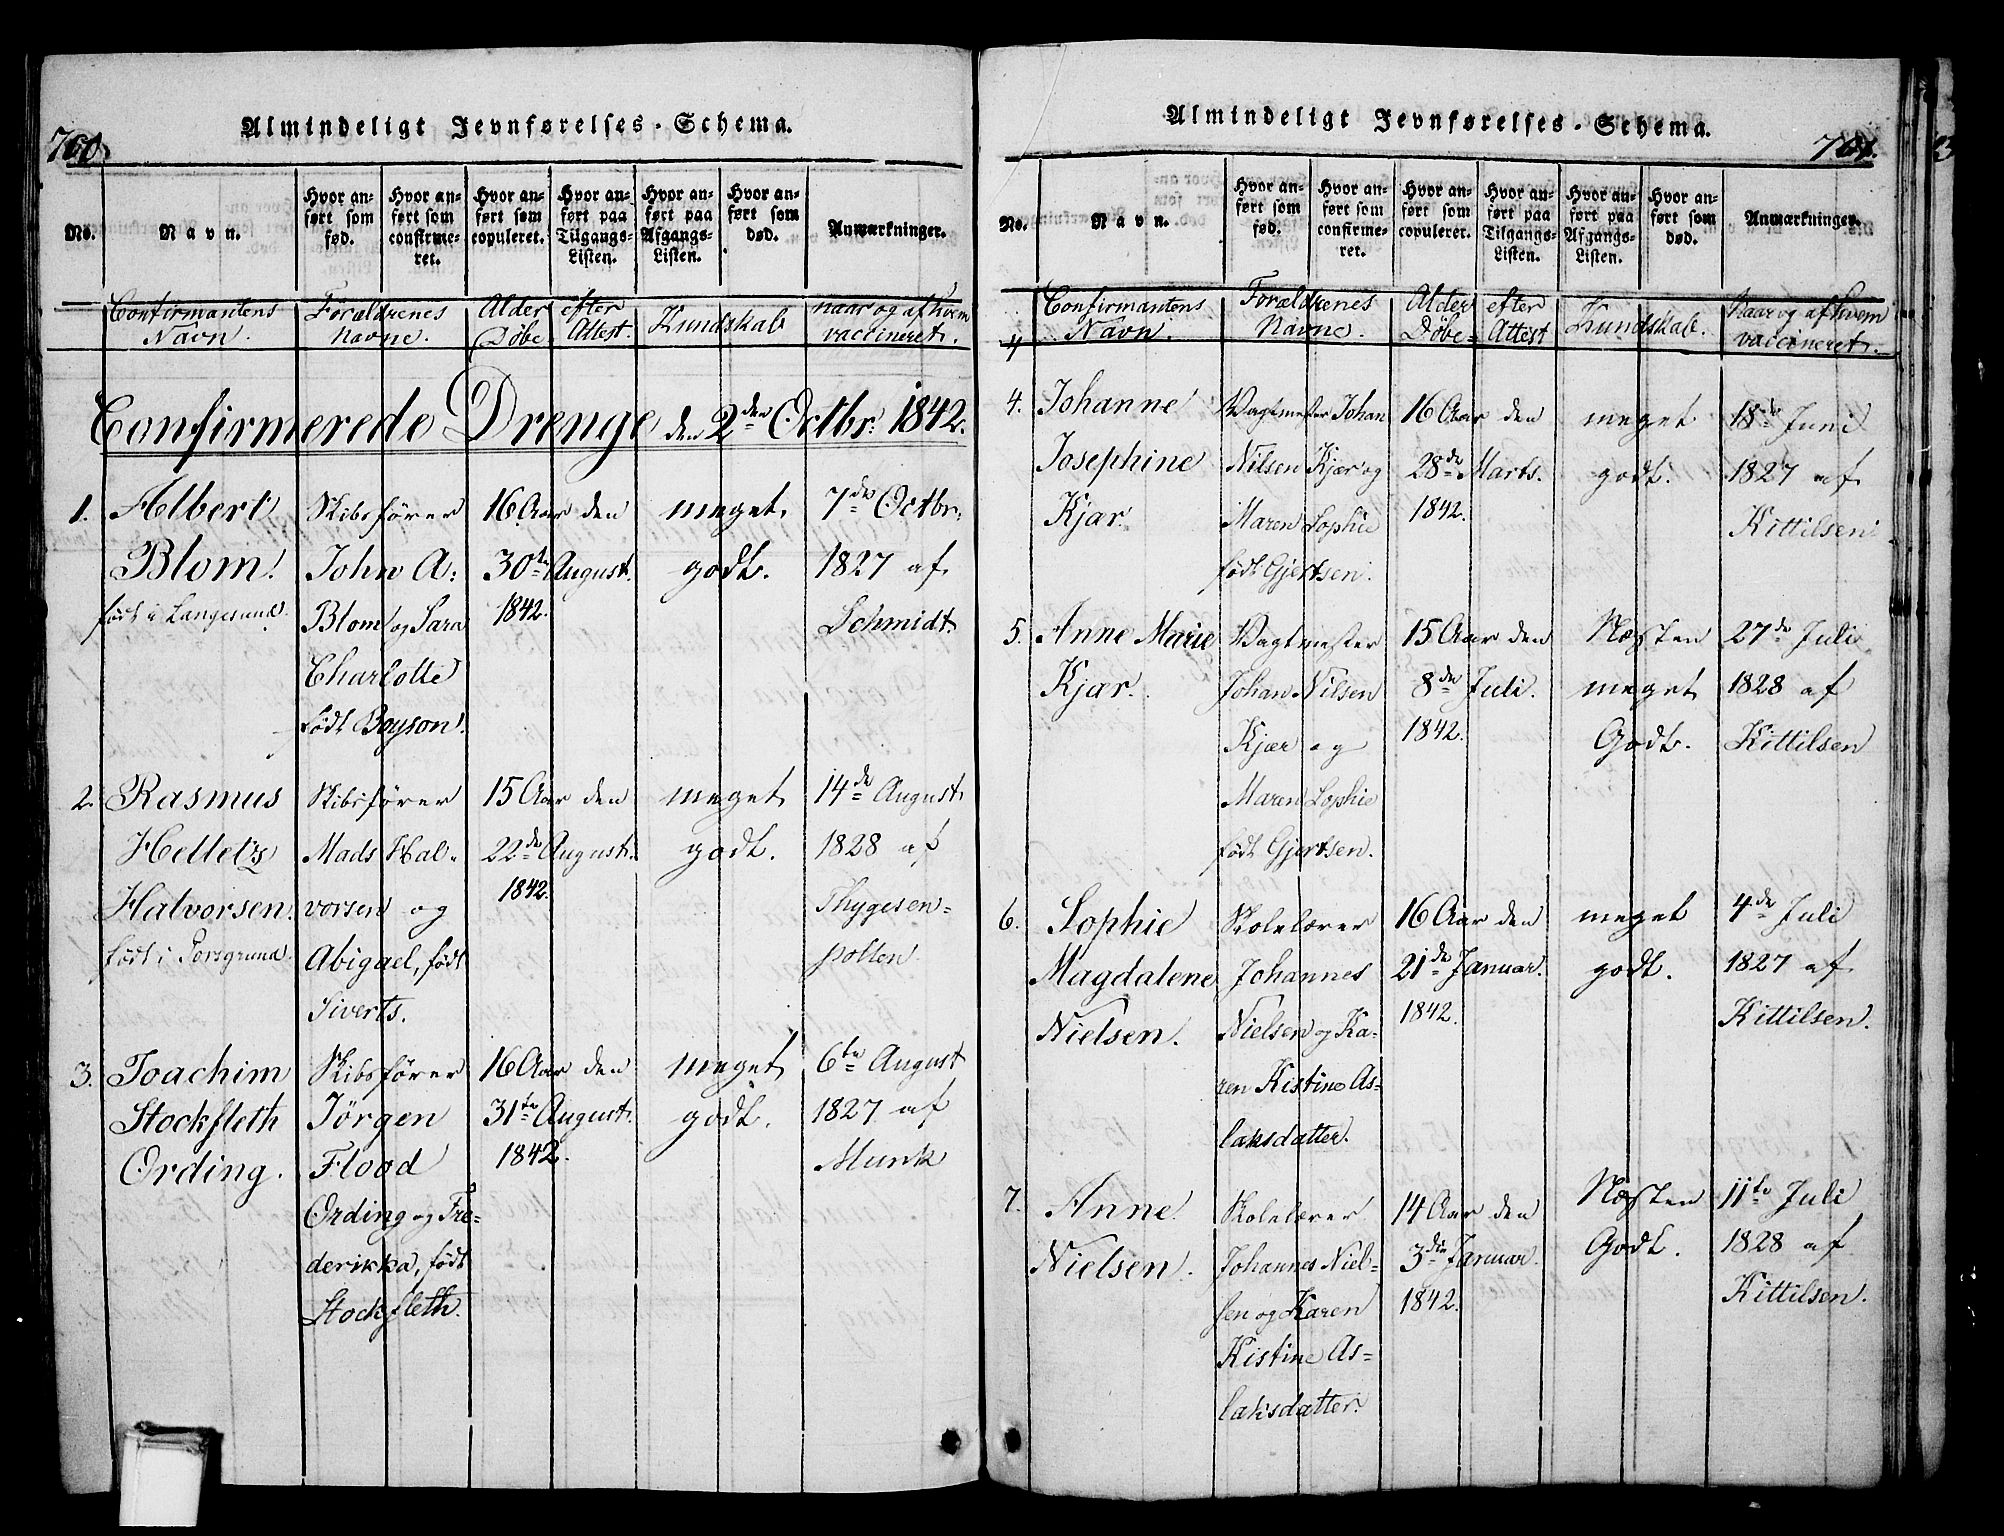 760.
Almindeligt Jevnførelses-Schema.
No.
Navn.
Hvor anført som fød.
Hvor anført som confirmeret.
Hvor anført som copuleret.
Hvor anført paa Tilgangs-Listen.
Hvor anført paa Afgangs-Listen.
Hvor anført som død.
Anmærkninger.
Confirmantens Navn.
Forældrenes Navne.
Alder efter Døbe-Attest.
Kundskab
naar og af hvem vaccineret.
Confirmerede Drenge den 2den Octbr: 1842.
1.
Albert
Blom.
født i Langesund.
Skibsfører
John A:
Blom og Sara
Charlotte
født Boyson.
16 Aar den
30te August.
1842.
meget
godt.
7de Octbr.
1827 af
Schmidt.
2.
Rasmus
Hellets
Halvorsen.
født i Porsgrund.
Skibsfører
Mads Hal-
vorsen og
Abigael, født
Siverts.
15 Aar den
22de August.
1842.
meget
godt.
14de August
1828 af
Thygesen-
polten.
3.
Joachim
Stockfleth
Ording.
Skibsfører
Jörgen
Flood
Ording og Fre-
derikka, født
Stockfleth.
16 Aar den
31te August.
1842.
meget
godt.
6te August
1827 af
Munk
761.
Almindeligt Jevnførelses-Schema.
No.
Navn.
Hvor anført som fød.
Hvor anført som confirmeret.
Hvor anført som copuleret.
Hvor anført paa Tilgangs-Listen.
Hvor anført paa Afgangs-Listen.
Hvor anført som død.
Anmærkninger.
Confirmantens Navn.
Forældrenes Navne.
Alder efter Døbe-Attest
Kundskab.
Naar og af hvem vaccineret.
4.
Johanne
Josephine
Kjær.
Vagtmester Johan
Nilsen Kjær og
Maren Sophie
født Gjertsen.
16 Aar den
28de Marts.
1842.
meget
godt.
18de Juni
1827 af
Kittilsen.
5.
Anne Marie
Kjær.
Vagtmester
Johan Nilsen
Kjær og
Maren Sophie
født Gjertsen.
15 Aar den
8de Juli.
1842.
Næsten
meget
Godt.
27de Juli
1828 af
Kittilsen
6.
Sophie
Magdalene
Nielsen.
Skolelærer
Johannes
Nielsen og Ka-
ren Kistine As-
laksdatter.
16 Aar den
21de Januar.
1842.
meget
godt.
4de Juli
1827 af
Kittilsen.
7.
Anne
Nielsen.
Skolelærer
Johannes Niel-
sen og Karen
Kistine As-
laksdatter.
14 Aar den
3die Januar.
1842.
Næsten
Godt.
11te Juli
1828 af
Kittilsen.